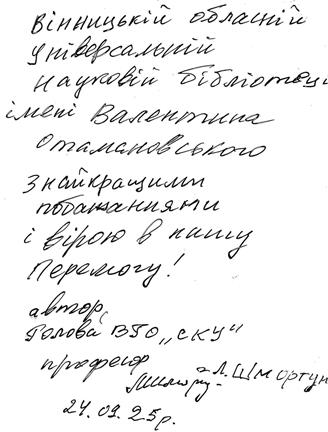 Вінницькій обласній
Універсальній
науковій бібліотеці
імені Валентина
Отамановського
З найкращими
побажаннями
і вірою в нашу
Перемогу!
автор,
Голова ВГО „СКУ“
професор
Л. Шморгун
24.09.25р.